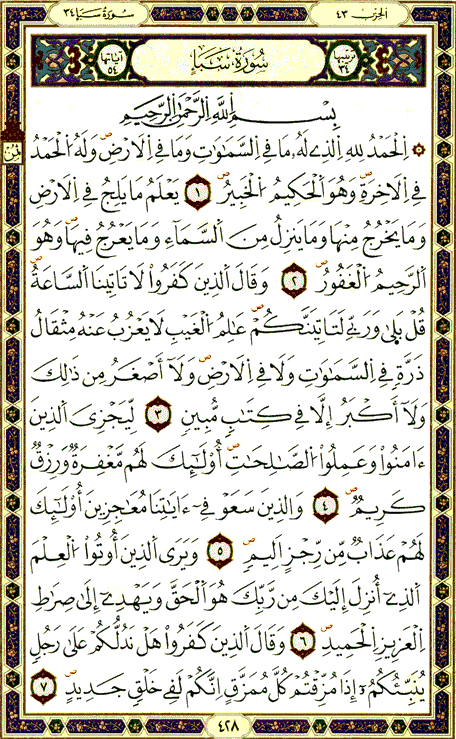 سورة سبإ ٣٤
الحزب ٤٣
ترتيبها ٣٤
سورة سبإ
آياتها ٥٤
بسم الله الرحمن الرحيم
۞ اِ۬لْحَمْدُ لِلهِ اِ۬لذِے لَهُۥ مَا فِے اِ۬لسَّمَٰوَٰتِ وَمَا فِے اِ۬لَارْضِۖ وَلَهُ اُ۬لْحَمْدُ
فِے اِ۬لَاخِرَةِۖ وَهُوَ اَ۬لْحَكِيمُ اُ۬لْخَبِيرُۖ ١ يَعْلَمُ مَا يَلِجُ فِے اِ۬لَارْضِ
وَمَا يَخْرُجُ مِنْهَا وَمَا يَنزِلُ مِنَ اَ۬لسَّمَآءِ وَمَا يَعْرُجُ فِيهَاۖ وَهُوَ
اَ۬لرَّحِيمُ اُ۬لْغَفُورُۖ ٢ وَقَالَ اَ۬لذِينَ كَفَرُواْ لَا تَاتِينَا اَ۬لسَّاعَةُۖ
قُلْ بَلَىٰ وَرَبِّے لَتَاتِيَنَّكُمْۖ عَٰلِمُ اُ۬لْغَيْبِ لَا يَعْزُبُ عَنْهُ مِثْقَالُ
ذَرَّةٖ فِے اِ۬لسَّمَٰوَٰتِ وَلَا فِے اِ۬لَارْضِۖ وَلَآ أَصْغَرُ مِن ذَٰلِكَ
وَلَآ أَكْبَرُ إِلَّا فِے كِتَٰبٖ مُّبِينٖ ٣ لِّيَجْزِيَ اَ۬لذِينَ
ءَامَنُواْ وَعَمِلُواْ اُ۬لصَّٰلِحَٰتِۖ أُوْلَٰٓئِكَ لَهُم مَّغْفِرَةٞ وَرِزْقٞ
كَرِيمٞۖ ٤ وَالذِينَ سَعَوْ فِےٓ ءَايَٰتِنَا مُعَٰجِزِينَ أُوْلَٰٓئِكَ
لَهُمْ عَذَابٞ مِّن رِّجْزٍ اَلِيمٖۖ ٥ وَيَرَى اَ۬لذِينَ أُوتُواْ اُ۬لْعِلْمَ
اَ۬لذِےٓ أُنزِلَ إِلَيْكَ مِن رَّبِّكَ هُوَ اَ۬لْحَقَّ وَيَهْدِےٓ إِلَىٰ صِرَٰطِ
اِ۬لْعَزِيزِ اِ۬لْحَمِيدِۖ ٦ وَقَالَ اَ۬لذِينَ كَفَرُواْ هَلْ نَدُلُّكُمْ عَلَىٰ رَجُلٖ
يُنَبِّئُكُمُۥٓ إِذَا مُزِّقْتُمْ كُلَّ مُمَزَّقٍ اِنَّكُمْ لَفِے خَلْقٖ جَدِيدٍۖ ٧
٤٢٨